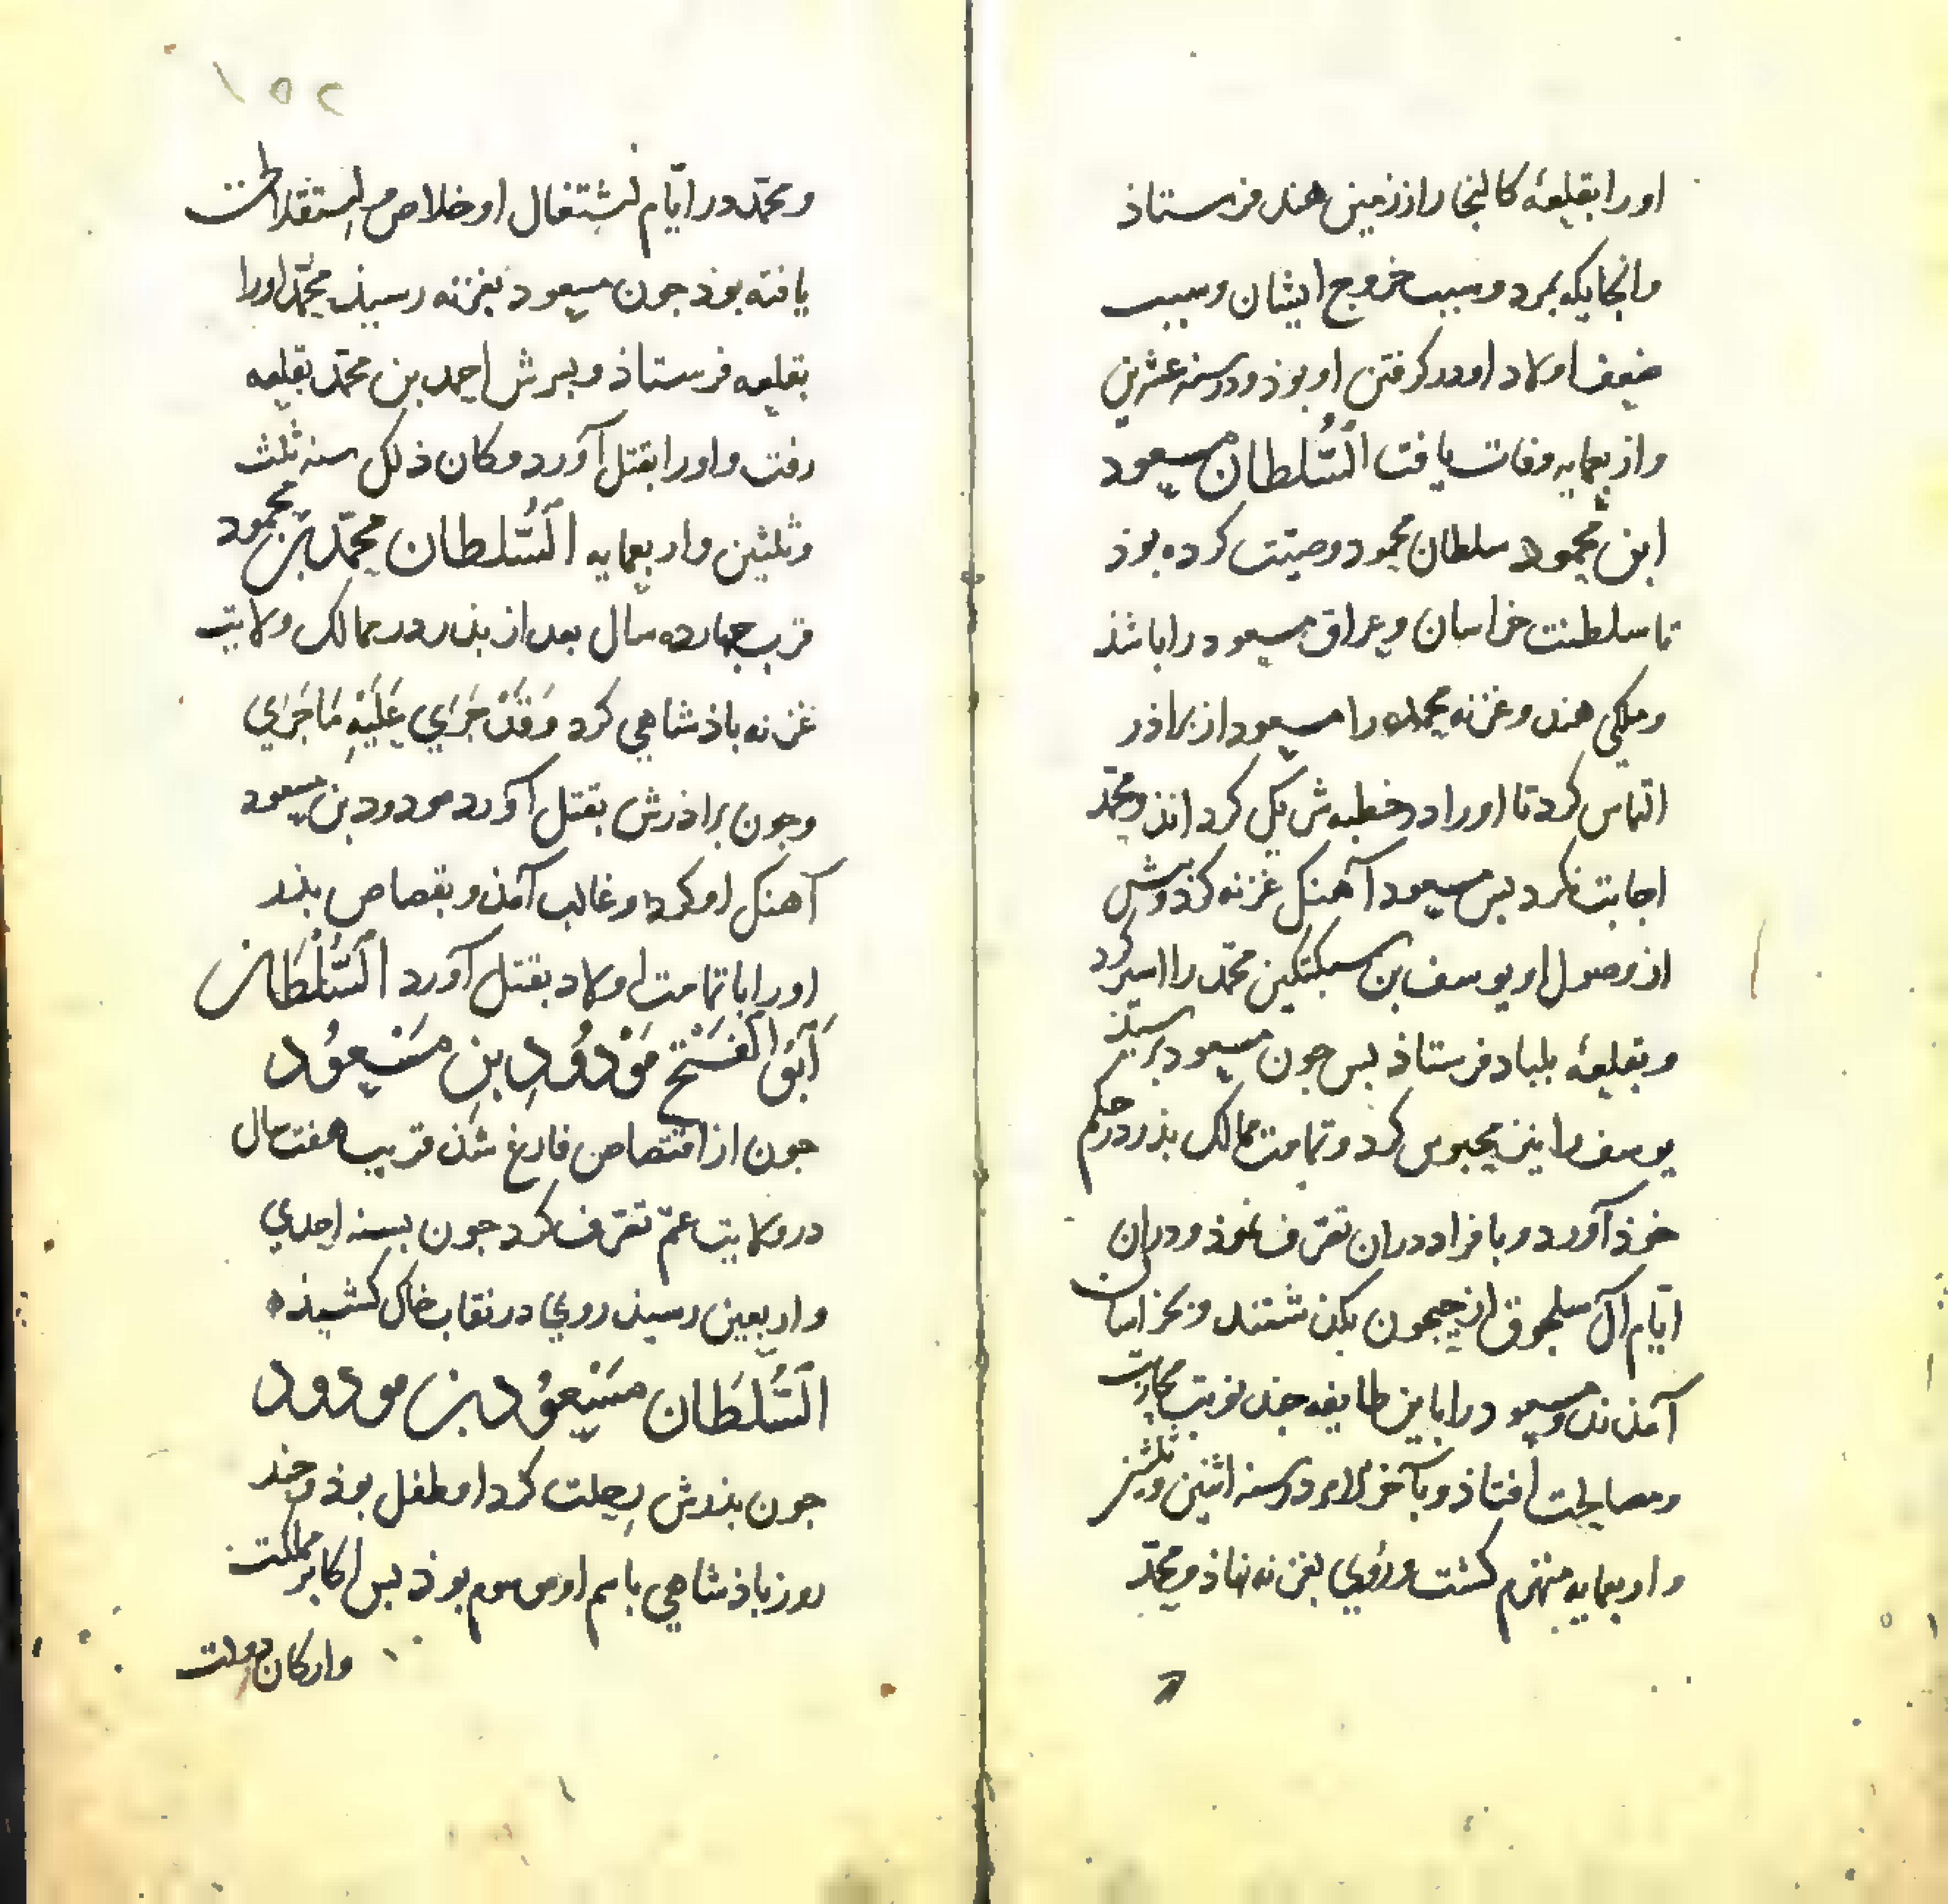 اورا بقلعهٔ کالنجار از زمین هند فرستاذ
وانجایکه بمرد و سبب خروج ایشان و سبب
ضعف اولاد او در کرفتن او بوذ و در سنه عشرین
واربعمایه وفات یافت السُّلطان مسعود
ابن محمود سلطان محمود وصیّت کرده بوذ
تا سلطنت خراسان و عراق مسعود را باشذ
و ملکی هند و غزنه محمد را مسعود از براذر
التماس کرد تا اورا در خطبه شریک کرداند ومحمّد
اجابت نکرد بس مسعود آهنک غزنه کرد وبیش
از وصول او یوسف بن سبکتکین محمّد را اسیر کرد
و بقلعهٔ بلباد فرستاذ بس جون مسعود برسیذ
یوسف را نیز محبوس کرد و تمامت ممالک بذر در حکم
خوذ آورد و بافراد دران تصرّف نموذ ودران
ایّام آل سلجوق از جیحون بکذشتند و بخراسان
آمذند ومسعود را با این طایفه جند نوبت محاربت
ومصالحت افتاذ و بآخر الامر در سنه اثنین وثلثین
واربعمایه منهزم کشت و رُوی بغزنه نهاذ ومحمّد
۱۵۲
ومحمّد در ایّام اشتغال او خلاص و استقلال
یافته بوذ جون مسعود بغزنه رسیذ محمّد اورا
بقلعه فرستاذ وبسرش احمد بن محمّد بقلعه
رفت واورا بقتل آورد وکان ذلک سنه ثلث
وثلثین واربعمایه السُّلطان محمّد بن محمود
قرب جهارده سال بعد از بذر در ممالک ولایت
غزنه باذشاهی کرد وَقَدْ جَرَی عَلَیْهِ مَا جَرَی
وجون براذرش بقتل آورد مودود بن مسعود
آهنک او کرد و غالب آمذ و بقصاص بذر
اورا با تمامت اولاد بقتل آورد السُّلْطَان
اَبُو الفَتْح مَوْدُوْدِ بنِ مَسْعُوْد
جون از اقتصاص فارغ شذ قریب هفت سال
در ولایت عمّ تصرّف کرد جون بسنه احدی
واربعین رسیذ روی در نقاب خاک کشیذ
السُّلطَان مَسْعوُد بن مودود
جون بذرش رحلت کرد او طفل بوذ وجند
روز باذشاهی باسم او موسوم بوذ بس اکابر مملکت
وارکان دولت